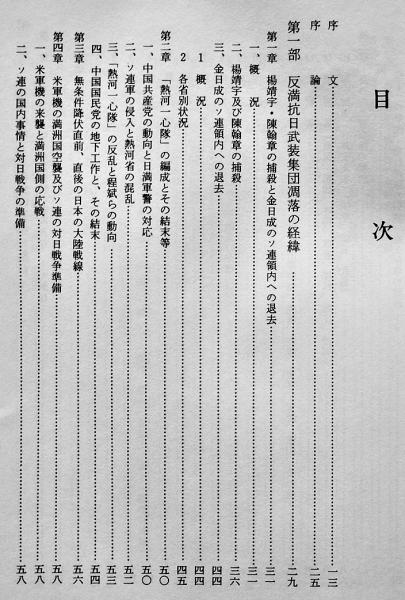 目次
序文……一三
序論……二五
第一部 反満抗日武装集団凋落の経緯……二九
第一章 楊靖宇・陳翰章の捕殺と金日成のソ連領内への退去……三一
一、概況……三一
二、楊靖宇及び陳翰章の捕殺……三六
三、金日成のソ連領内への退去……四四
1 概況……四四
2 各省別状況……四五
第二章 「熱河一心隊」の編成とその結末等……五〇
一、中国共産党の動向と日満軍警の対応……五〇
二、ソ連軍の侵入と熱河省の混乱……五二
三、「熱河一心隊」の反乱と程斌らの動向……五三
四、中国国民党の地下工作と、その結末……五四
第三章 無条件降伏直前、直後の日本の大陸戦線……五六
第四章 米軍機の満洲国空襲及びソ連の対日戦争準備……五八
一、米軍機の来襲と満洲国側の応戦……五八
二、ソ連の国内事情と対日戦争の準備……五八